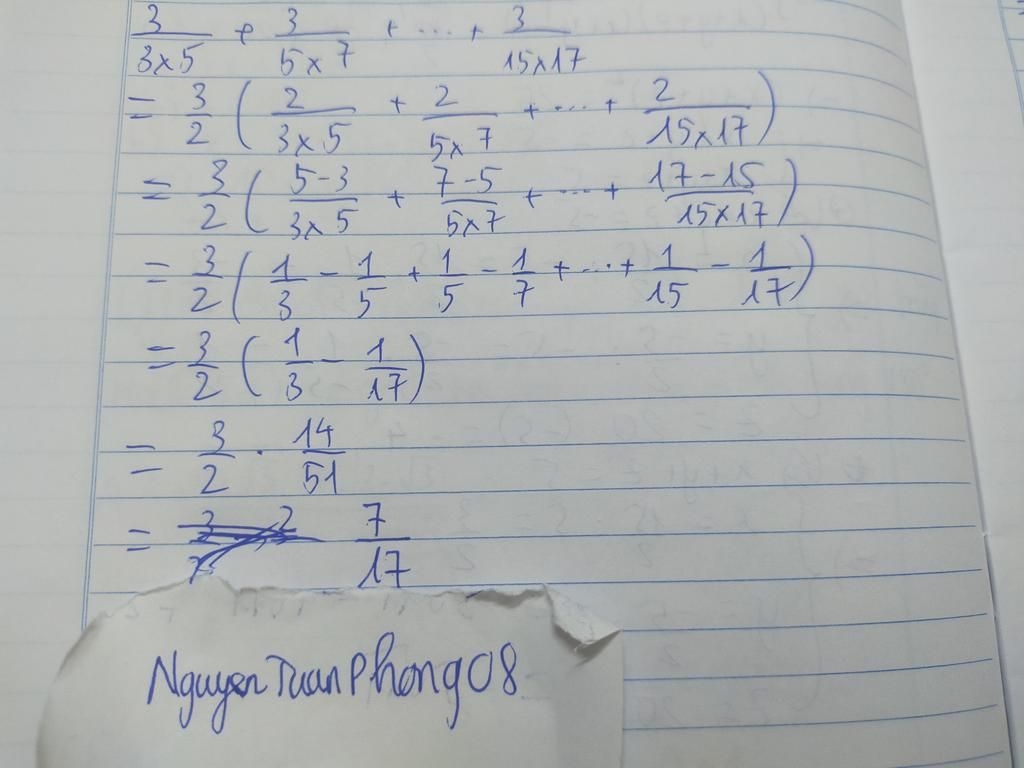 3/3x5 + 3/5x7 + ... + 3/15x17
= 3/2 ( 2/3x5 + 2/5x7 + ... + 2/15x17 )
= 3/2 ( 5-3/3x5 + 7-5/5x7 + ... + 17-15/15x17 )
= 3/2 ( 1/3 - 1/5 + 1/5 - 1/7 + ... + 1/15 - 1/17 )
= 3/2 ( 1/3 - 1/17 )
= 3/2 . 14/51
= 7/17
NguyenTuanPhong08